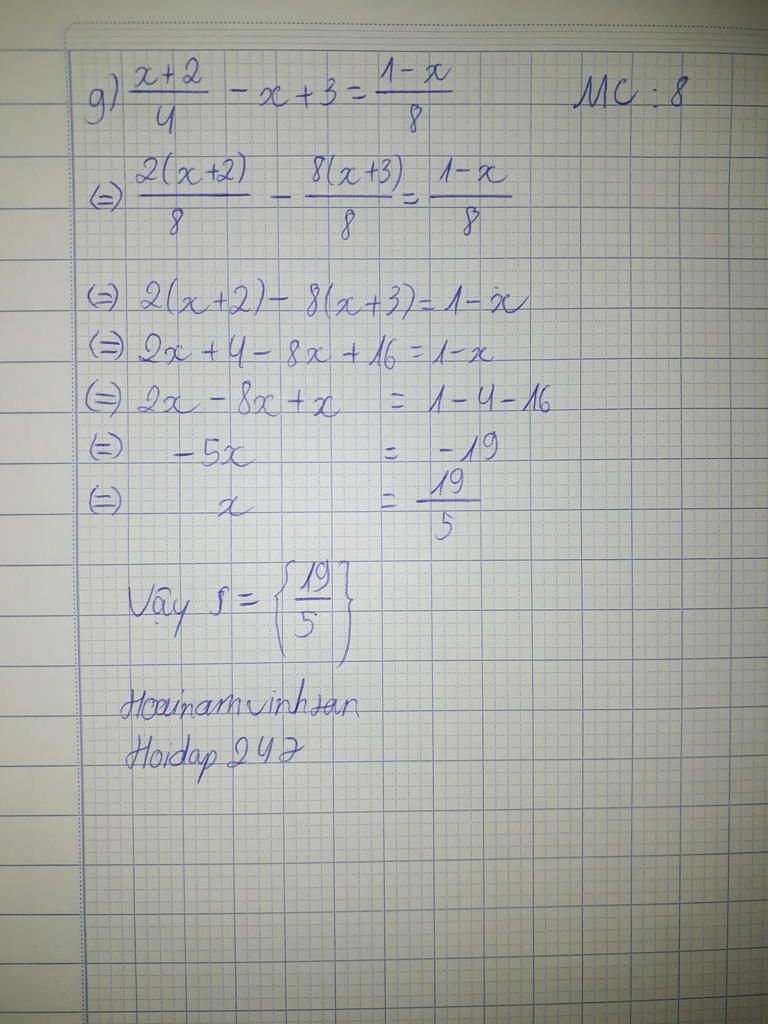 g) (x+2)/4 - x + 3 = (1-x)/8 MC : 8
(=) 2(x+2)/8 - 8(x+3)/8 = (1-x)/8
(=) 2(x+2) - 8(x+3) = 1-x
(=) 2x + 4 - 8x + 16 = 1-x
(=) 2x - 8x + x = 1-4-16
(=) -5x = -19
(=) x = 19/5
Vậy S = {19/5}
Hoainamvinhtan
Hoidap247